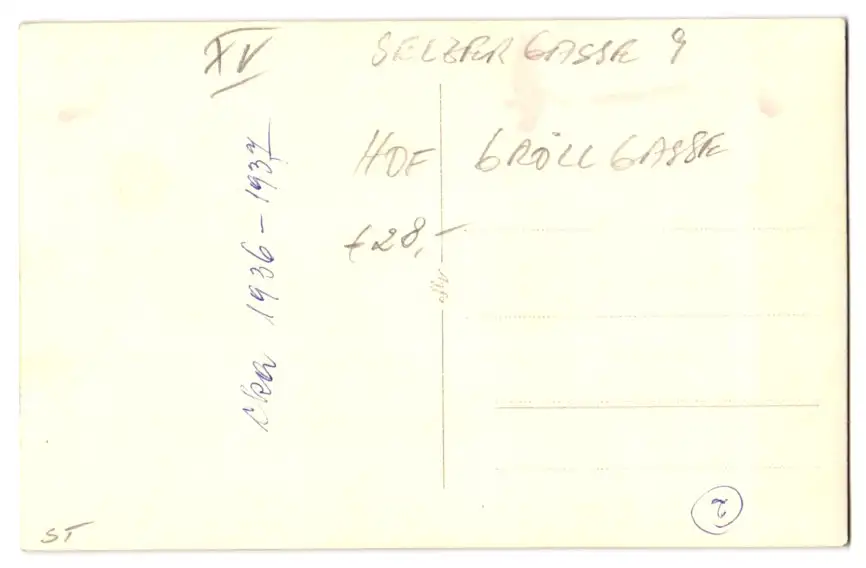 XV
SELZERGASSE 9
HOF GRÖLLGASSE
€28,-
cka 1936-1937
2
ST